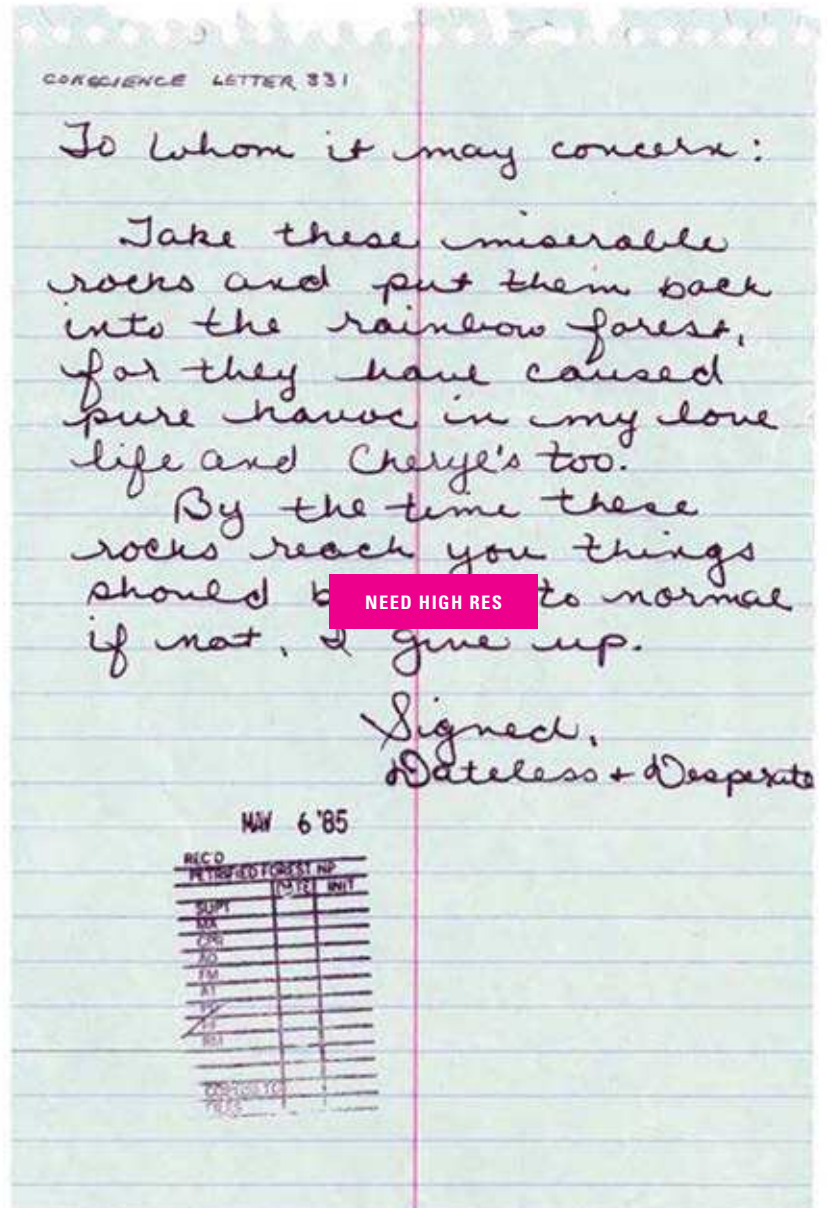 CONSCIENCE LETTER 331
To whom it may concern:
Take these miserable
rocks and put them back
into the rainbow forest,
for they have caused
pure havoc in my love
life and Cherye's too.
By the time these
rocks reach you things
should b to normal
NEED HIGH RES
if not, I give up.
Signed,
Dateless + Desperate
MAY 6 '85
REC'D
PETRIFIED FOREST NP
DATE INIT
SUPT
MA
CPR
AO
FM
AT
RM
FILES